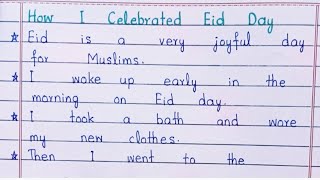 How I Celebrated Eid Day
☆ Eid is a very joyful day
for Muslims.
☆ I woke up early in the
morning on Eid day.
☆ I took a bath and wore
my new clothes.
☆ Then I went to the